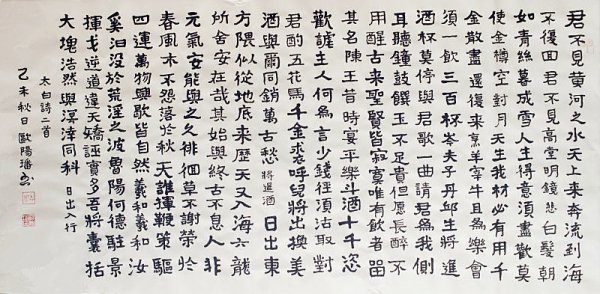 君不見黃河之水天上來奔流到海
不復回君不見高堂明鏡悲白髮朝
如青絲暮成雪人生得意須盡歡莫
使金樽空對月天生我材必有用千
金散盡還復來烹羊宰牛且為樂會
須一飲三百杯岑夫子丹邱生將進
酒杯莫停與君歌一曲請君為我側
耳聽鐘鼓饌玉不足貴但愿長醉不
用醒古來聖賢皆寂寞唯有飲者畱
其名陳王昔時宴平樂斗酒十千恣
歡謔主人何為言少錢徑須沽取對
君酌五花馬千金裘呼兒將出換美
酒與爾同銷萬古愁 將進酒 日出東
方隈似從地底來歷天又入海六龍
所舍安在哉其始與終古不息人非
元氣安能與之久徘徊草不謝榮於
春風木不怨落於秋天誰揮鞭策驅
四運萬物興歇皆自然羲和羲和汝
奚汩沒於荒淫之波魯陽何德駐景
揮戈逆道違天矯誣實多吾將囊括
大塊浩然與溟涬同科 日出入行
太白詩二首
己未秋日 歐陽潘書